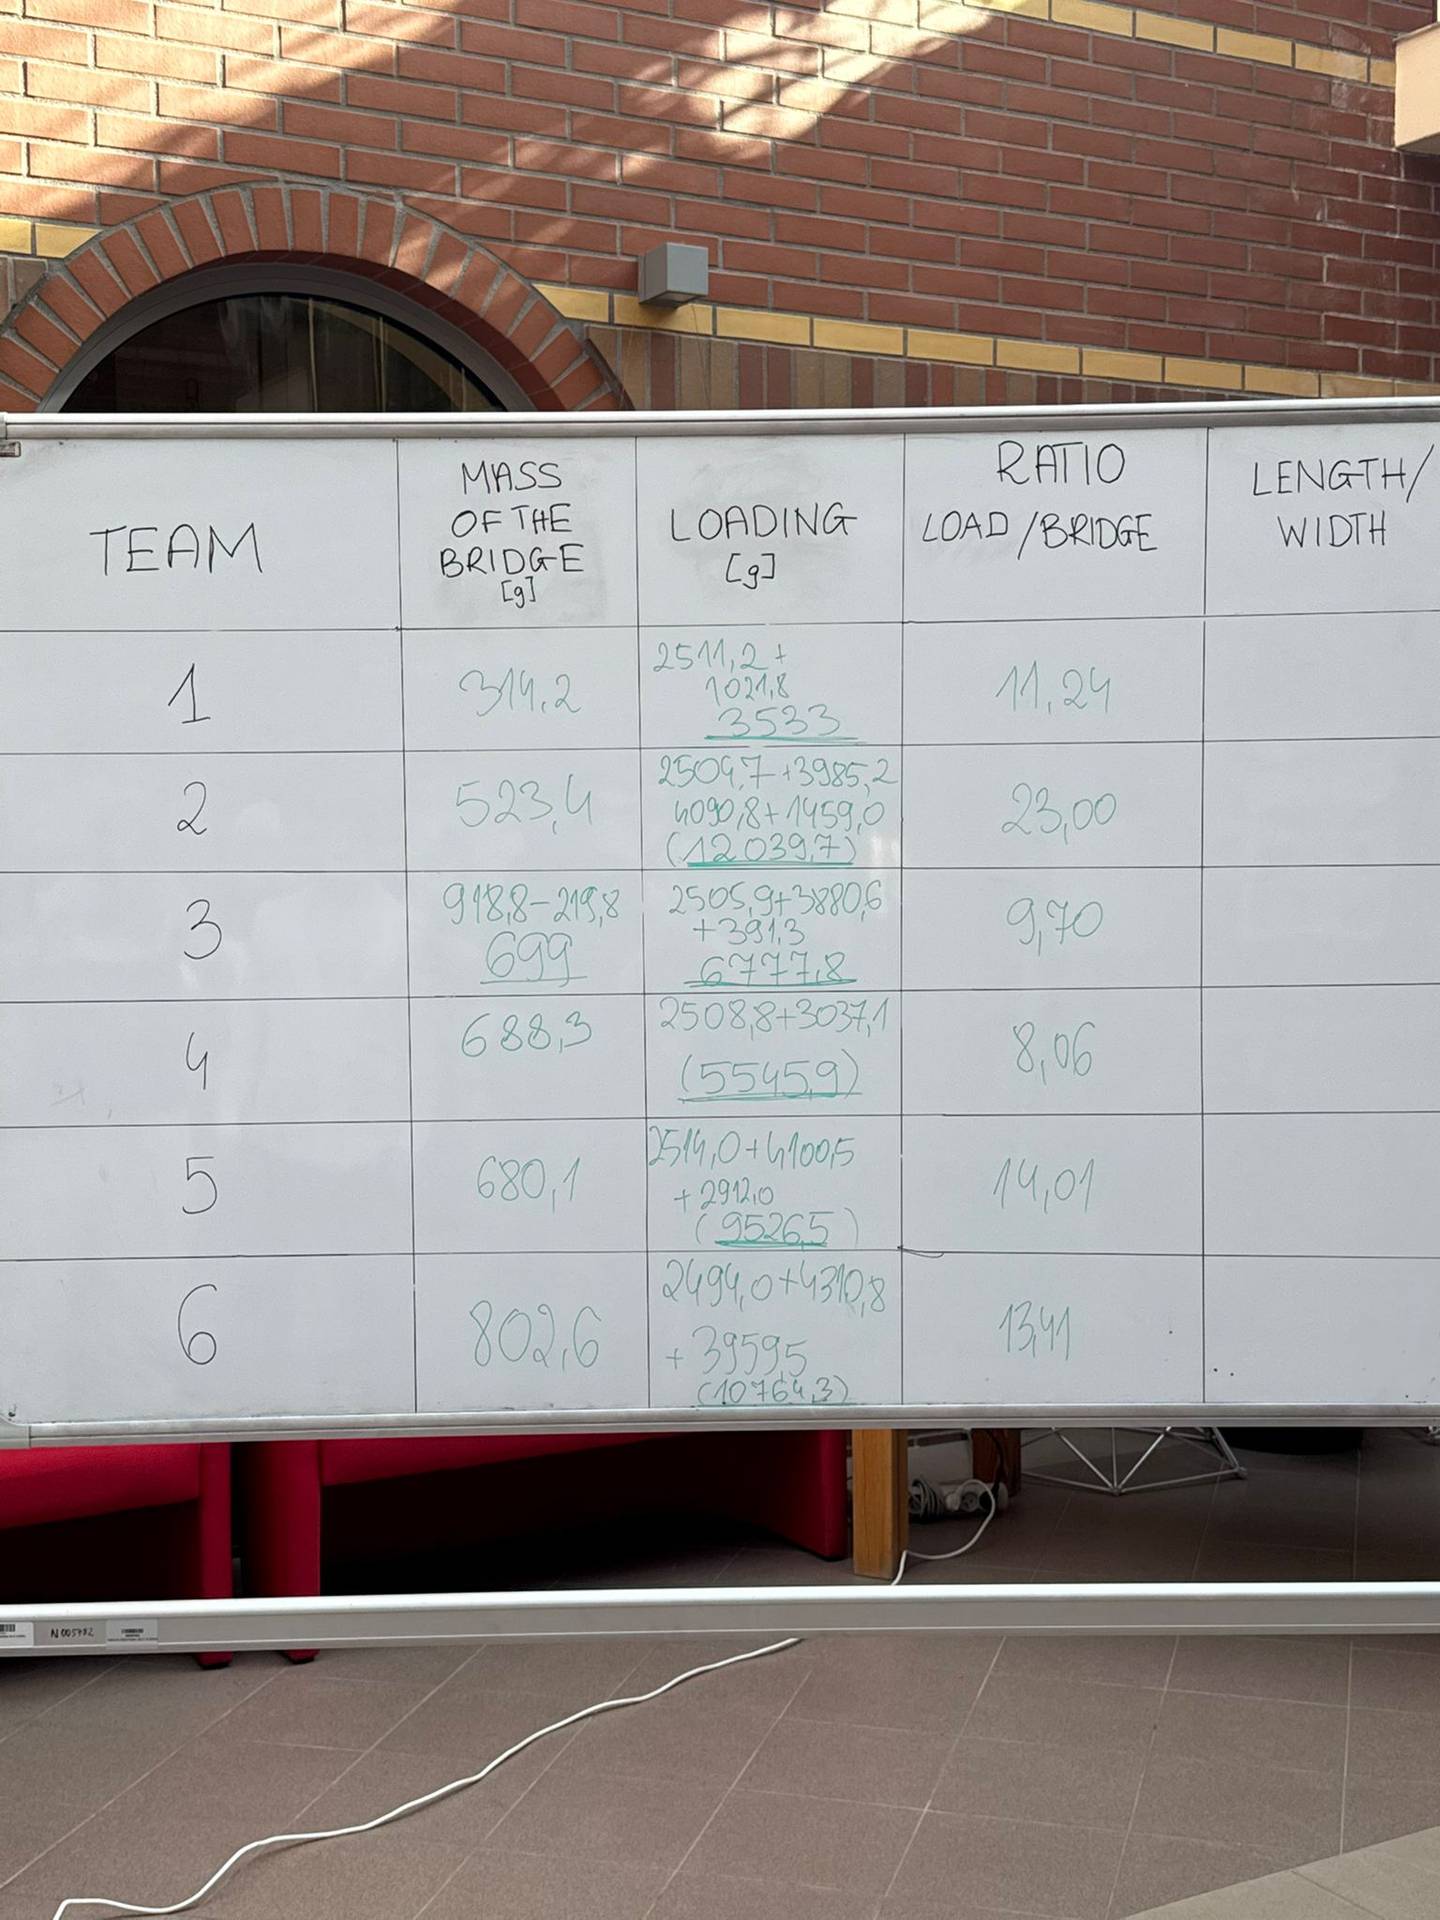 TEAM
MASS
OF THE
BRIDGE
[g]
LOADING
[g]
RATIO
LOAD/BRIDGE
LENGTH/
WIDTH
1
314,2
2511,2+
1021,8
3533
11,24
2
523,4
2504,7+3985,2
4090,8+1459,0
(12039,7)
23,00
3
918,8-219,8
699
2505,9+3880,6
+391,3
6777,8
9,70
4
688,3
2508,8+3037,1
(5545,9)
8,06
5
680,1
2514,0+4100,5
+2912,0
(9526,5)
14,01
6
802,6
2494,0+4310,8
+3959,5
(10764,3)
13,41